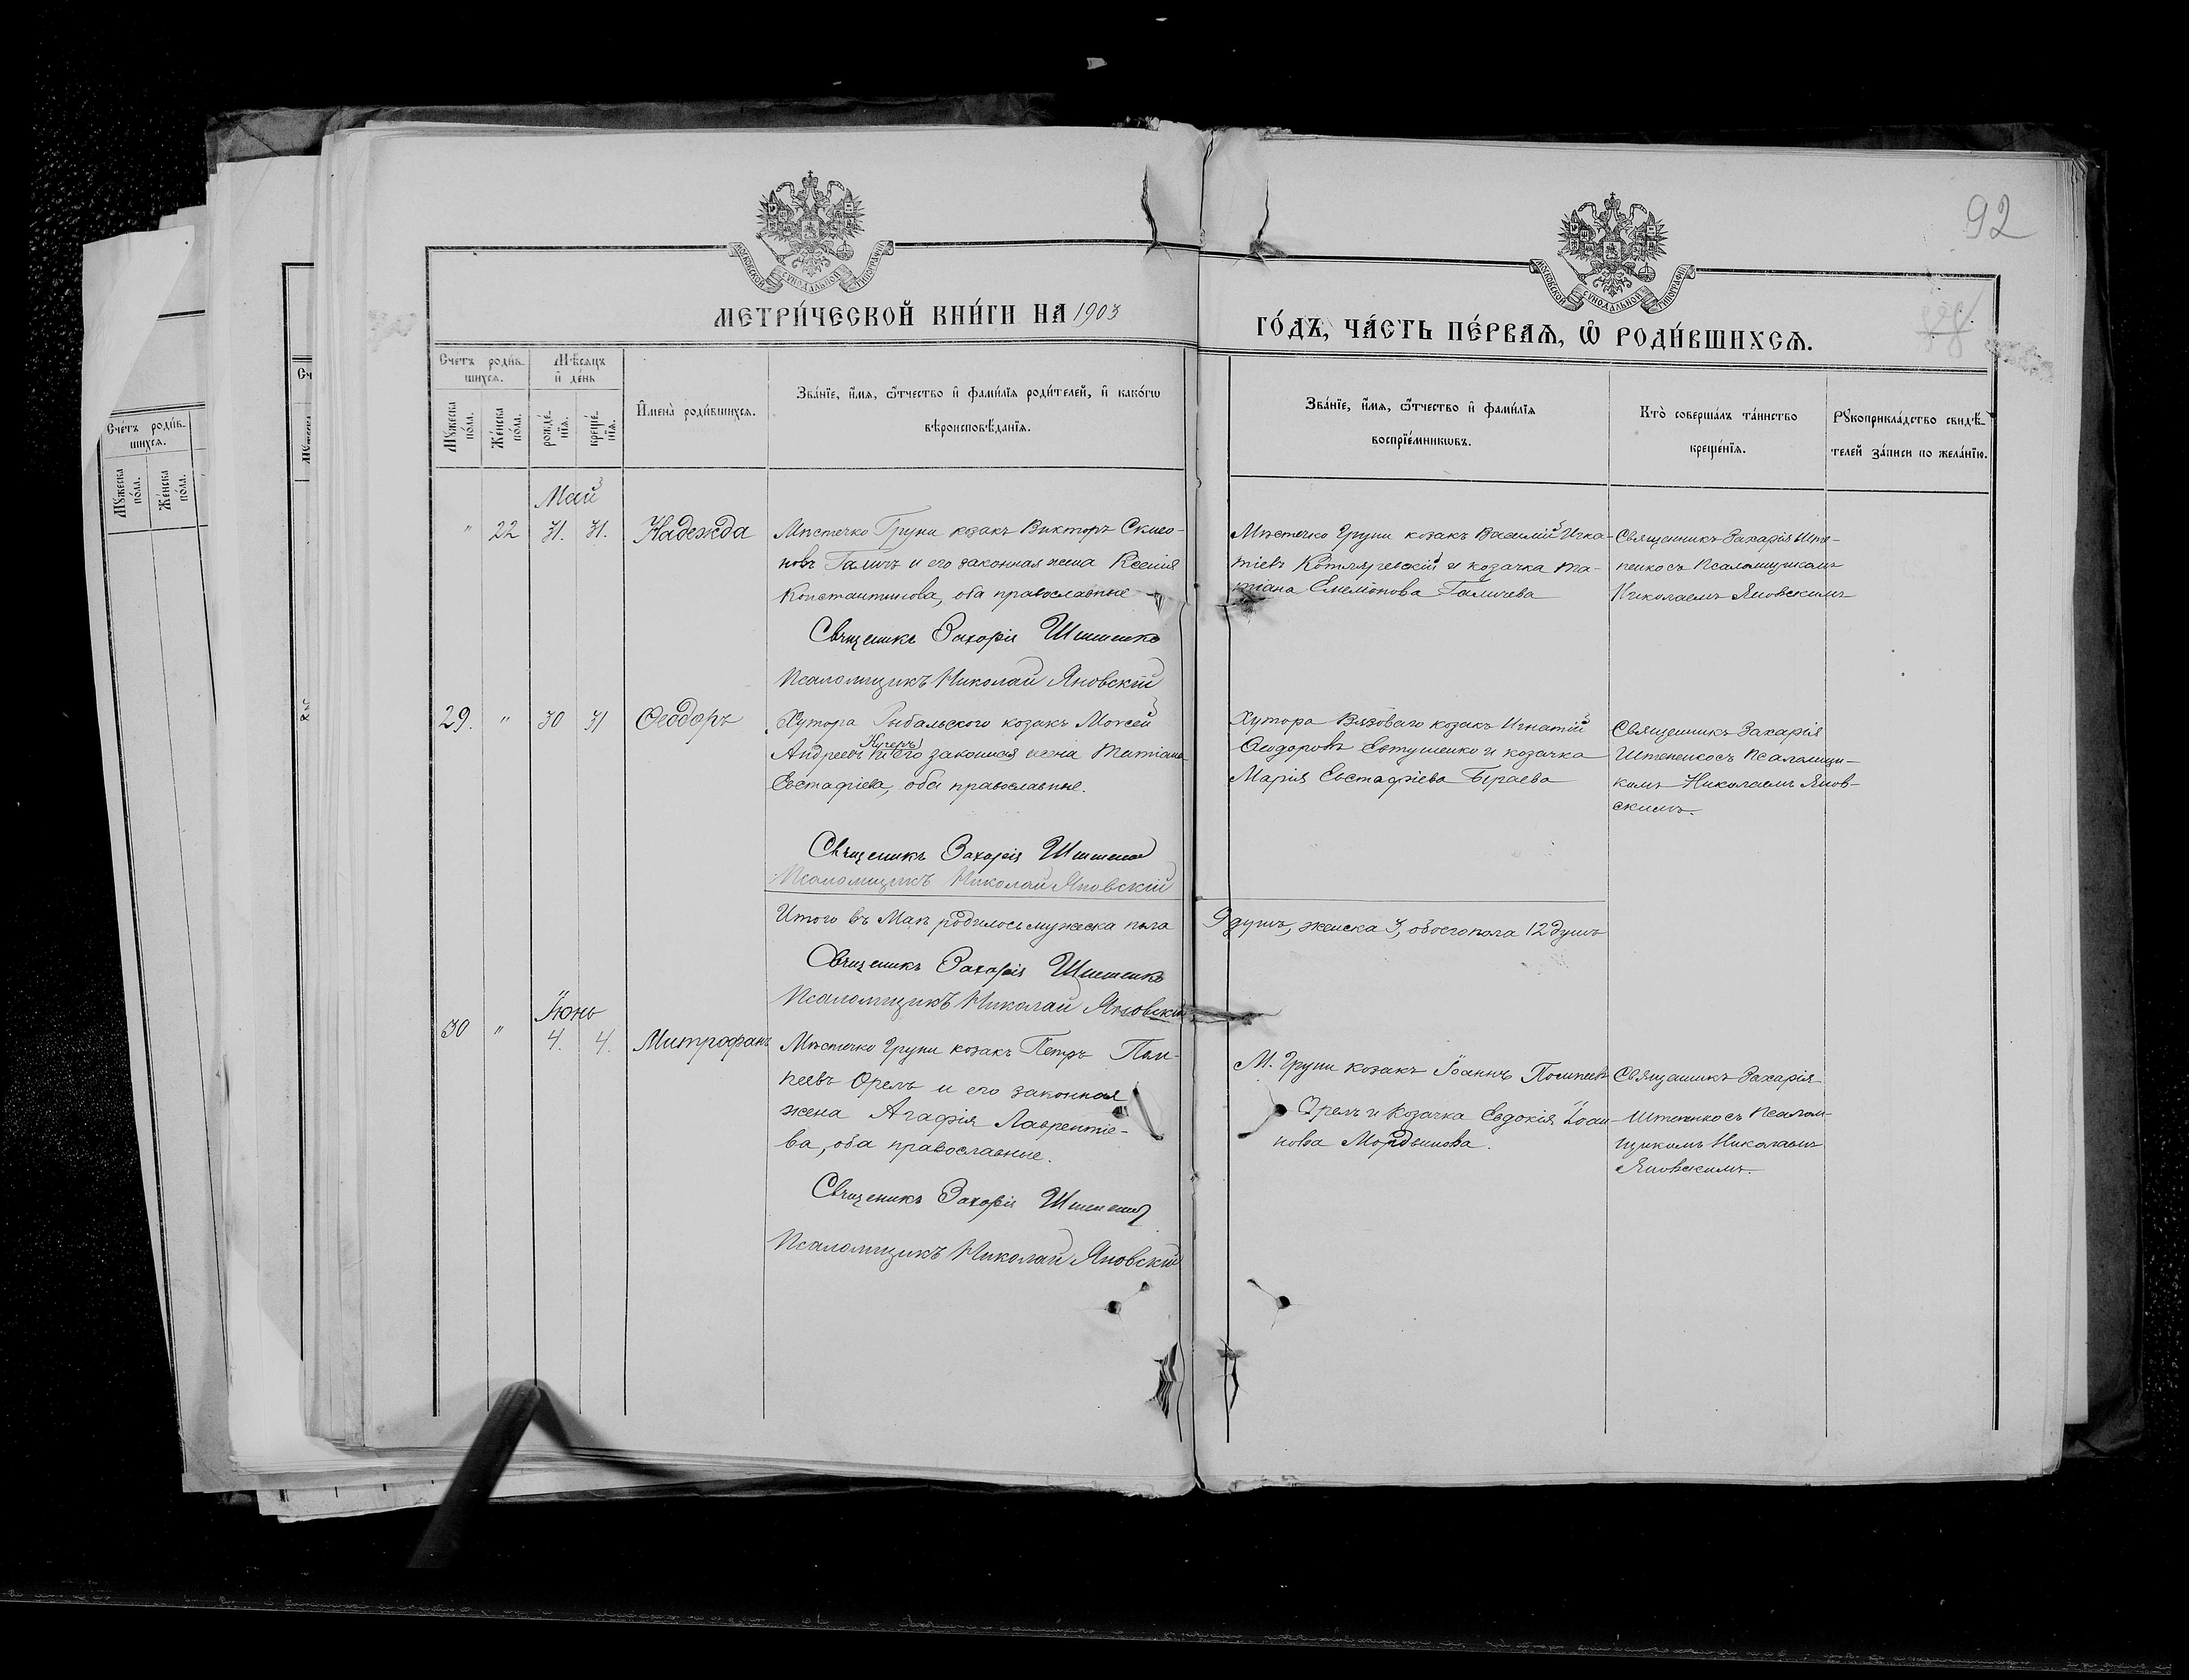 92
МОСКОВСКОЙ СѴНОДАЛЬНОЙ ТИПОГРАФІИ
МОСКОВСКОЙ СѴНОДАЛЬНОЙ ТИПОГРАФІИ
МЕТРИ́ЧЕСКОЙ КНИ́ГИ НА 1903
ГО́ДЪ, ЧА́СТЬ ПЕ́РВАѦ, Ѡ҆ РОДИ́ВШИХСѦ.
Сче́тъ роди́в-
шихсѧ.
Мѣ́сѧцъ
и҆ де́нь
Мꙋ́жеска
по́ла.
Же́нска
по́ла.
рожде́-
нїѧ.
креще́-
нїѧ.
И҆мена̀ роди́вшихсѧ.
Зва́нїе, и҆́мѧ, ѻ҆́тчество и҆ фами́лїѧ роди́телей, и҆ како́гѡ
вѣроисповѣ́данїѧ.
Зва́нїе, и҆́мѧ, ѻ҆́тчество и҆ фами́лїѧ
воспрїе́мникѡвъ.
Кто̀ соверша́лъ та́инство
креще́нїѧ.
Рꙋкоприкла́дство свидѣ́-
телей за́писи по жела́нїю.
Май
" 22 31. 31. Надежда
Мѣстечко Груни козакъ Викторъ Симео-
новъ Галичъ и его законная жена Ксенія
Константинова, оба православные
Священикъ Захарія
Псаломщикъ Николай Яновскій
Мѣстечко Груни козакъ Василій Игна-
тіевъ Котляревскій и козачка Та-
тіана Симеонова Галичева
Священникъ ЗахаріяШте-
пенко съ Псаломщикомъ
Николаемъ Яновскимъ
29. " 30 31 Ѳеодоръ
Хутора Рыбальского козакъ Моѵсей
Андреевъ Кучеръ и его законная жена Татіана
Евстафіева, оба православные.
Священикъ Захарія
Псаломщикъ Николай Яновскій
Хутора Вязоваго козакъ Игнатій
Ѳеодоровъ Евтушенко и козачка
Марія Евстафіева
Священникъ Захарія
Штепенко съ Псаломщи-
комъ Николаемъ Янов-
скимъ.
Итого въ Маѣ родилось мужеска пола
9 душъ, женска 3, обоего пола 12 душъ
Священикъ Захарія
Псаломщикъ Николай Яновскій
Іюнь
30 " 4. 4. Митрофанъ
Мѣстечко Груни козакъ Петръ Пом-
пеевъ Орелъ и его законная
жена Агафія Лаврентіе-
ва, оба православные.
Священикъ Захарія
Псаломщикъ Николай Яновскій
М. Груни козакъ Іоаннъ Помпеевъ
Орелъ и козачка Евдокія Іоан-
нова Мордвинова.
Священникъ Захарія
Штепенко съ Псалом-
щикомъ Николаемъ
Яновскимъ.
Сче́тъ роди́в-
шихсѧ.
Мꙋ́жеска
по́ла.
Же́нска
по́ла.